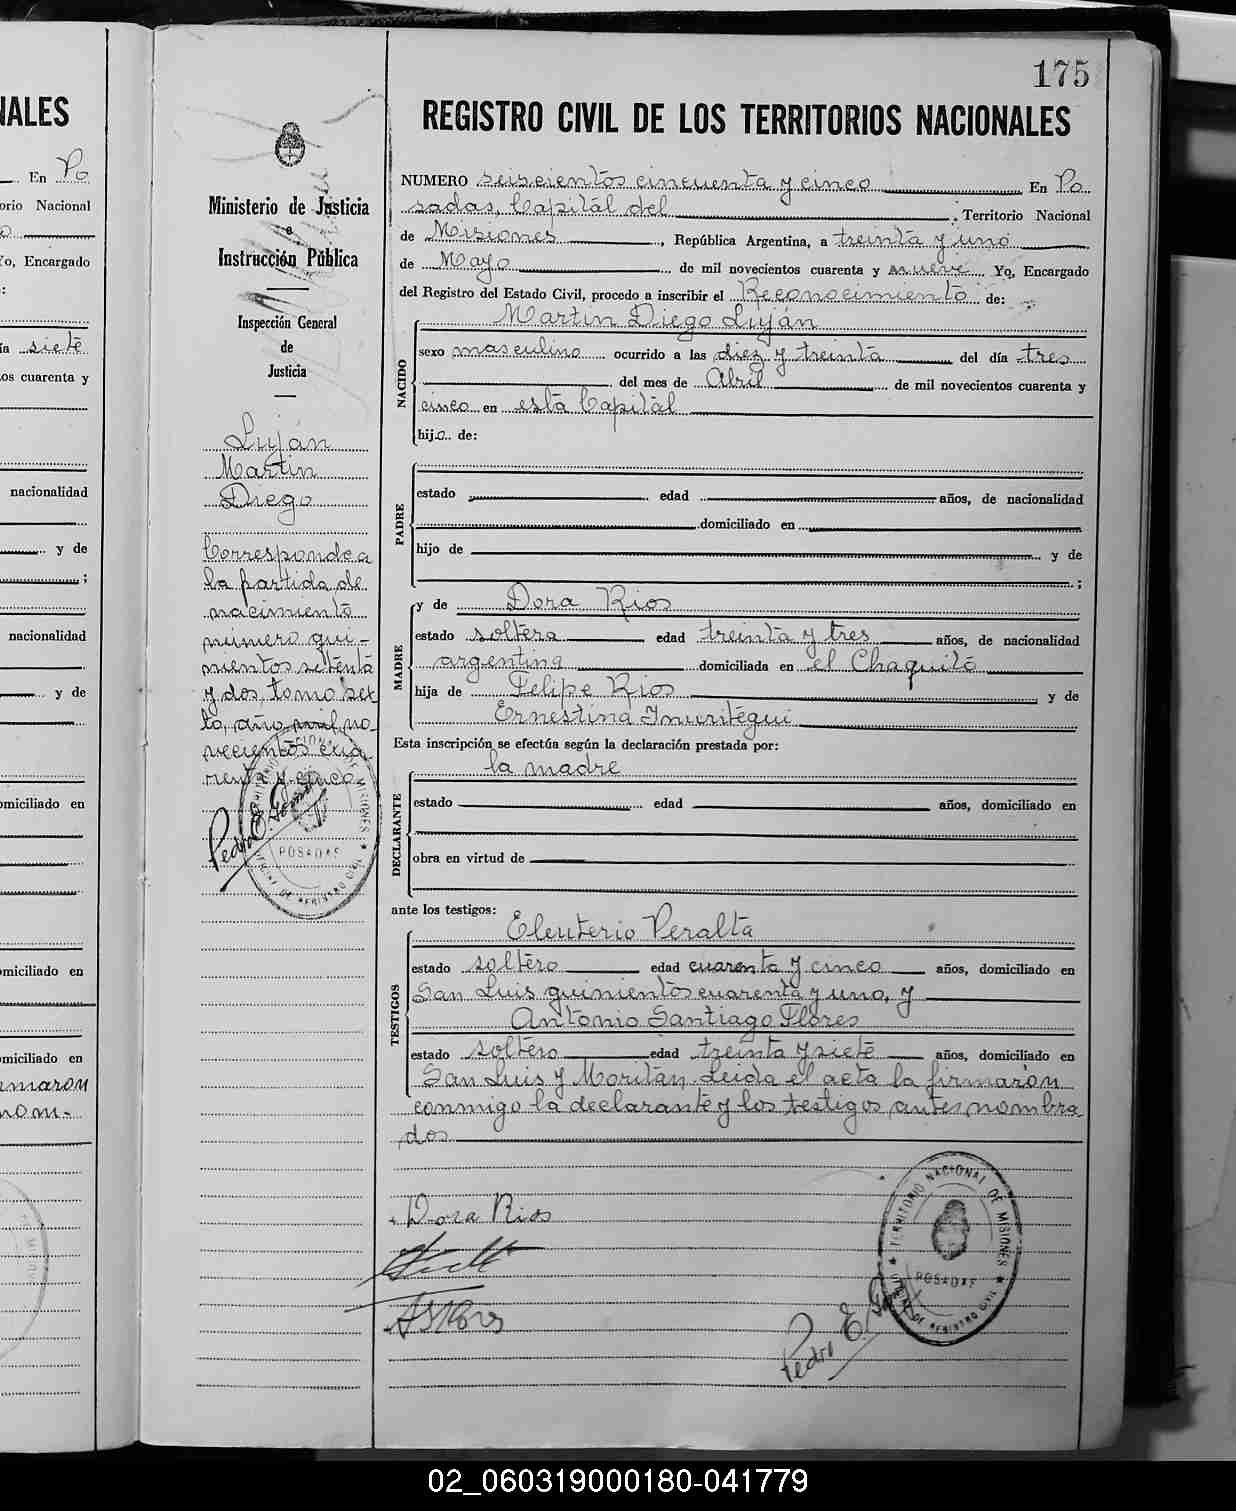 175
REGISTRO CIVIL DE LOS TERRITORIOS NACIONALES
NUMERO seiscientos cincuenta y cinco En Po
sadas, Capital del Territorio Nacional
de Misiones, República Argentina, a treinta y uno
de Mayo de mil novecientos cuarenta y nueve Yo, Encargado
del Registro del Estado Civil, procedo a inscribir el Reconocimiento de:
NACIDO
Martin Diego Luján
sexo masculino ocurrido a las diez y treinta del día tres
del mes de Abril de mil novecientos cuarenta y
cinco en esta Capital
hijo de:
PADRE
estado edad años, de nacionalidad
domiciliado en
hijo de y de
;
MADRE
y de Dora Rios
estado soltera edad treinta y tres años, de nacionalidad
argentina domiciliada en el Chaquito
hija de Felipe Rios y de
Ernestina
Esta inscripción se efectúa según la declaración prestada por:
DECLARANTE
la madre
estado edad años, domiciliado en
obra en virtud de
ante los testigos:
TESTIGOS
Eleuterio Peralta
estado soltero edad cuarenta y cinco años, domiciliado en
San Luis quinientos cuarenta y uno, y
Antonio Santiago Flores
estado soltero edad treinta y siete años, domiciliado en
San Luis y Moritán. Leida el acta la firmaron
conmigo la declarante y los testigos antes nombra
dos
Dora Rios
Pedro E.
TERRITORIO NACIONAL DE MISIONES
POSADAS
OFICINA DE REGISTRO CIVIL
Ministerio de Justicia
e
Instrucción Pública
Inspección General
de
Justicia
Luján
Martin
Diego
Corresponde a
la partida de
nacimiento
número qui-
nientos setenta
y dos, tomo sex
to, año mil no-
vecientos cua
renta y cinco
Pedro E.
POSADAS
OFICINA DE REGISTRO CIVIL
NALES
En Po
orio Nacional
Yo, Encargado
:
ía siete
os cuarenta y
nacionalidad
y de
;
nacionalidad
y de
omiciliado en
omiciliado en
omiciliado en
rmaron
nom-
02_060319000180-041779